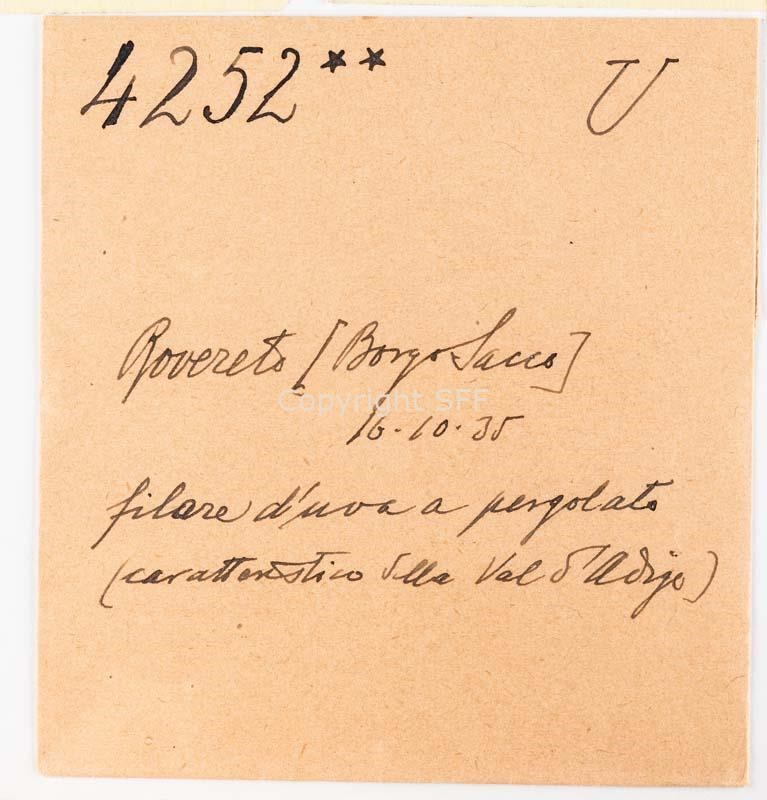 4252** U
Rovereto [Borgo Sacco]
Copyright SFF
16-10-35
filare d'uva a pergolato
(caratteristico della Val d'Adige)